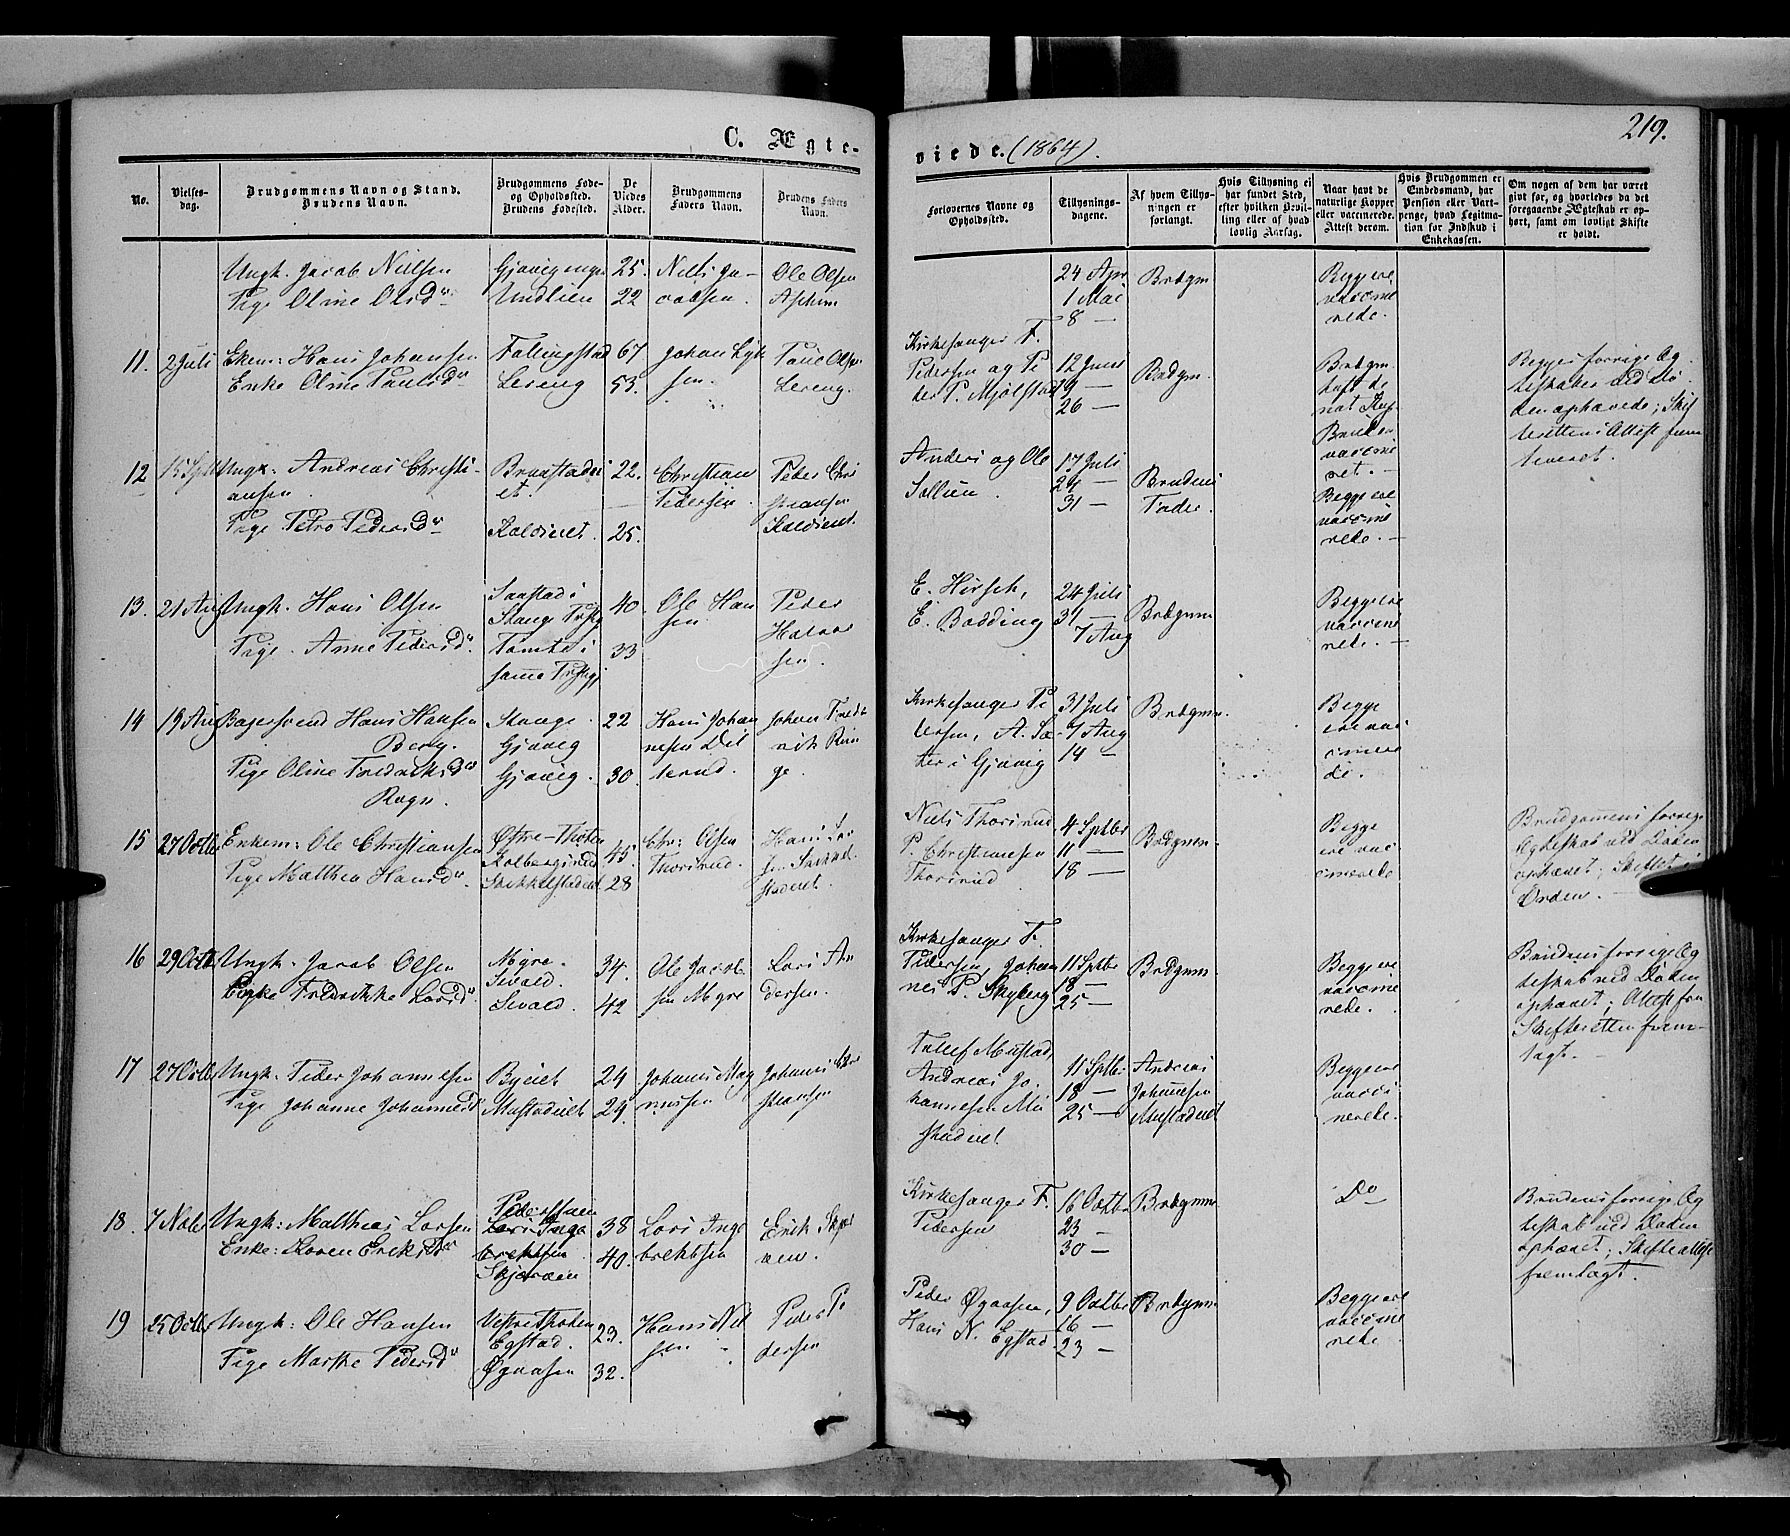 C. Ægte-
viede. (1864).
219.
No.
Vielses-
dag.
Brudgommens Navn og Stand.
Brudens Navn.
Brudgommens Føde-
og Opholdssted.
Brudens Fødested.
De
Viedes
Alder.
Brudgommens
Faders Navn.
Brudens Faders
Navn.
Forlovernes Navne og
Opholdssted.
Tillysnings-
dagene.
Af hvem Tillys-
ningen er
forlangt.
Hvis Tillysning ei
har fundet Sted,
efter hvilken Bevil-
ling eller af hvad
lovlig Aarsag.
Naar havt de
naturlige Kopper
eller vaccinerede.
Attest derom.
Hvis Brudgommen er
Embedsmand, har
Pension eller Vart-
penge, hvad Legitima-
tion for Indskud i
Enkekassen.
Om nogen af dem har været
givt før, og hvorledes da det
foregaaende Ægteskab er op-
hørt, samt om lovligt Skifte
er holdt.
Ungk. Jacob Nielsen
Pige Oline Olsdr
25.
22
Niels Ja-
cobsen.
Ole Olsen
24 Apr
1 Mai
8 —
Brdgm
Begge ere
vaccine
rede.
11. 2 Juli
Ekem: Hans Johansen
Enke Oline Paulsdr
Lereng
67
53.
Lereng.
Kirkesanger F.
Pedersen og Pe
der P. Mjølstad
12 Juni
19 —
26 —
Brdgm.
Bruden
vaccine
ret. —
Begges forrige Æg
teskaber ved Dø
den ophævede; Skif
terettens Attest frem
leveret.
12
15 Septb
Ungk: Andreas Christi-
ansen.
Pige Petra Pedersdr
et.
22.
25.
Christian
Pedersen
Peder Chri
stiansen
Anders og Ole
17 Juli
24 —
31 —
Brudens
Fader.
Begge ere
vaccine
rede. —
13. 21 Aug
Ungk. Hans Olsen
Pige Anne Pedersdr.
Stange Prstgj
Tomte i
samme Prstgj
40.
33
Ole Han
sen.
Peder
Halvor
sen.
E. Hirsch,
E. Bødding
24 Juli
31 —
7 Aug
Brdgmm
Begge ere
vaccine
rede. —
14 19 Aug
Bagersvend Hans Hansen
Berg.
Pige Oline Fredriksdr
Stange.
Gjøvig
Gjøvig.
22
30
Hans Johan
nesen
Johan Fred
rik
Kirkesanger Pe
dersen, A. Sæ-
ter i Gjøvig
31 Juli
7 Aug
14 —
Brdgmm.
Begge
ere vac
cinere
de.
15 27 Octbr
Enkem: Ole Christiansen
Pige Mathea Hansdr.
Østre-Thoten
45.
28
Chr: Olsen
Thorsrud.
Hans Lar
sen
Niels Thorsrud
P. Christiansen
Thorsrud
4 Sptbr
11 —
18 —
Brdgmm.
Begge
ere vac
cinerede
Brudgomens forrige
Ægteskab ved Døden
ophævet; Skiftet i
Orden. —
16 29 Octb
Ungk. Jacob Olsen
Enke Fredrikke Larsdr
Myre.
34.
42
Ole Jacob
sen Myre
Lars An
dersen.
Kirkesanger F.
Pedersen, Johan
nes P. Skyberg
11 Sptbr
18 —
25 —
Brdgmm
Begge ere
vaccine
rede.
Brudens forrige Æg
teskab ved Døden
ophævet; Attest fra
Skifteretten frem-
lagt. —
17 27 Octbr
Ungk. Peder Johannesen
Pige Johanne Johannesdr
Byeiet
Mustadeiet
24
29.
Johannes Mag
nussen
Johannes Chri
stiansen
Mustad,
Andreas Jo-
hannesen Mu
stadeiet
11 Sptbr
18 —
25 —
Andreas
Johannesen
Mustadeiet
Begge ere
vacci
nerede.
18. 7 Novbr
Ungk: Mathias Larsen
Enke: Karen Eriksdr
38
40.
Lars Inge
brektsen
Erik Skjær
ven.
Kirkesanger F.
Pedersen
16 Octbr
23 —
30 —
Brdgmm
Do
Brudens forrige Æg
teskab ved Døden
ophævet; Skifteattest
fremlagt.
19 25 Octbr
Ungk: Ole Hansen
Pige Marthe Pedersdr
Vestre Thoten
Egstad.
Øgaasen
23.
32.
Hans Niel
sen
Peder Pe
dersen
Peder Øgaasen,
Hans N. Egstad
9 Octbr
16 —
23 —
Brdgmm
Begge ere
vaccine
rede.